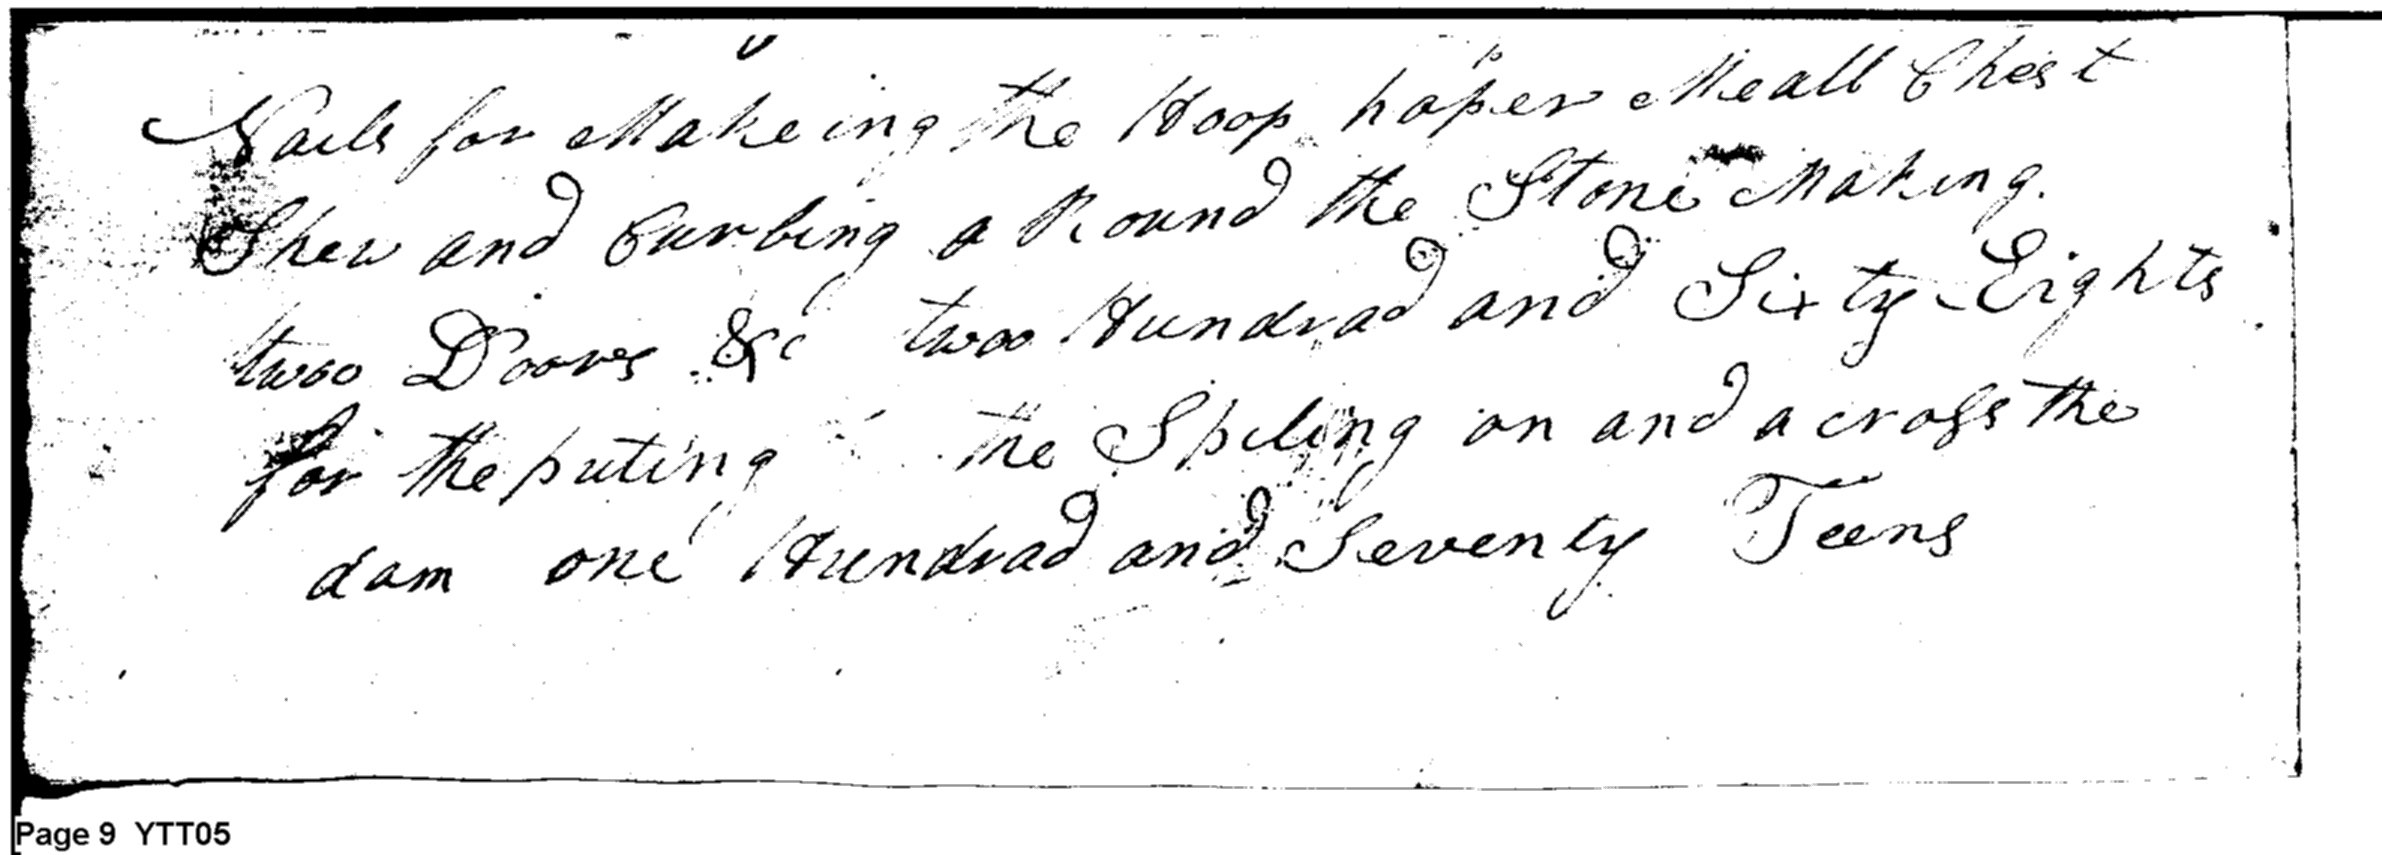 Nails for Makeing the Hoop hoper Meall Chest
Shew and Curbing a Round the Stone Making
two Doors &c two Hundrad and Sixty Eights
for the puting the Spiling on and across the
dam one Hundrad and Seventy Teens
Page 9 YTT05